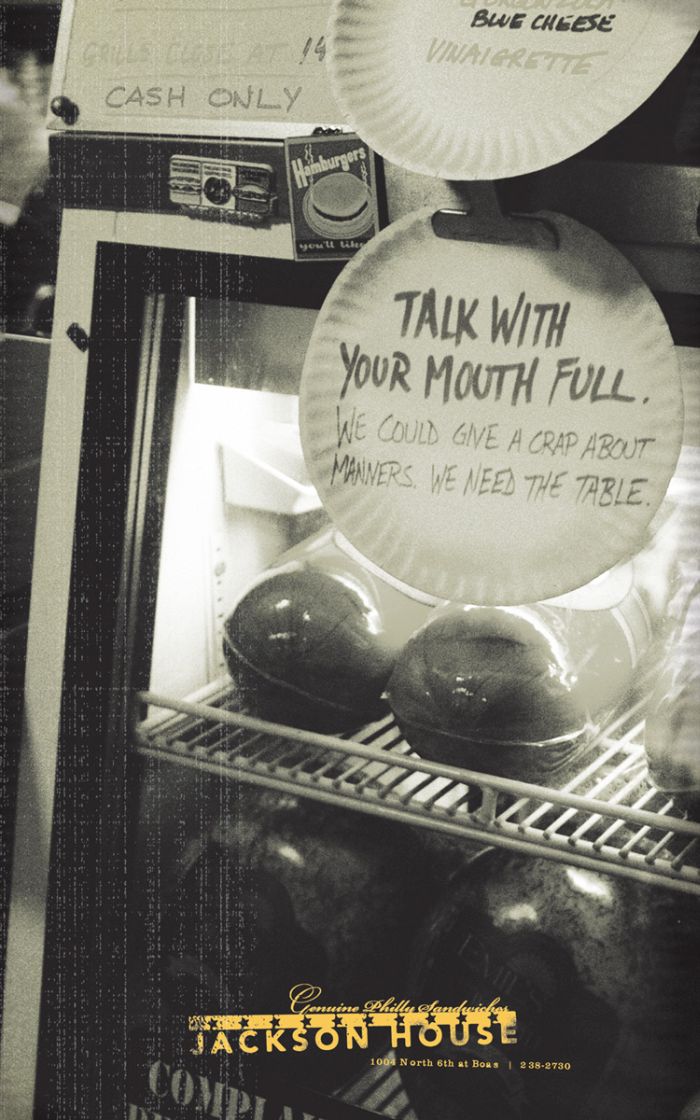 BLUE CHEESE
VINAIGRETTE
GRILLS CLOSE AT
CASH ONLY
Hamburgers
you'll like
TALK WITH
YOUR MOUTH FULL.
WE COULD GIVE A CRAP ABOUT
MANNERS. WE NEED THE TABLE.
Genuine Philly Sandwiches
JACKSON HOUSE
1004 North 6th at Boas | 238-2730